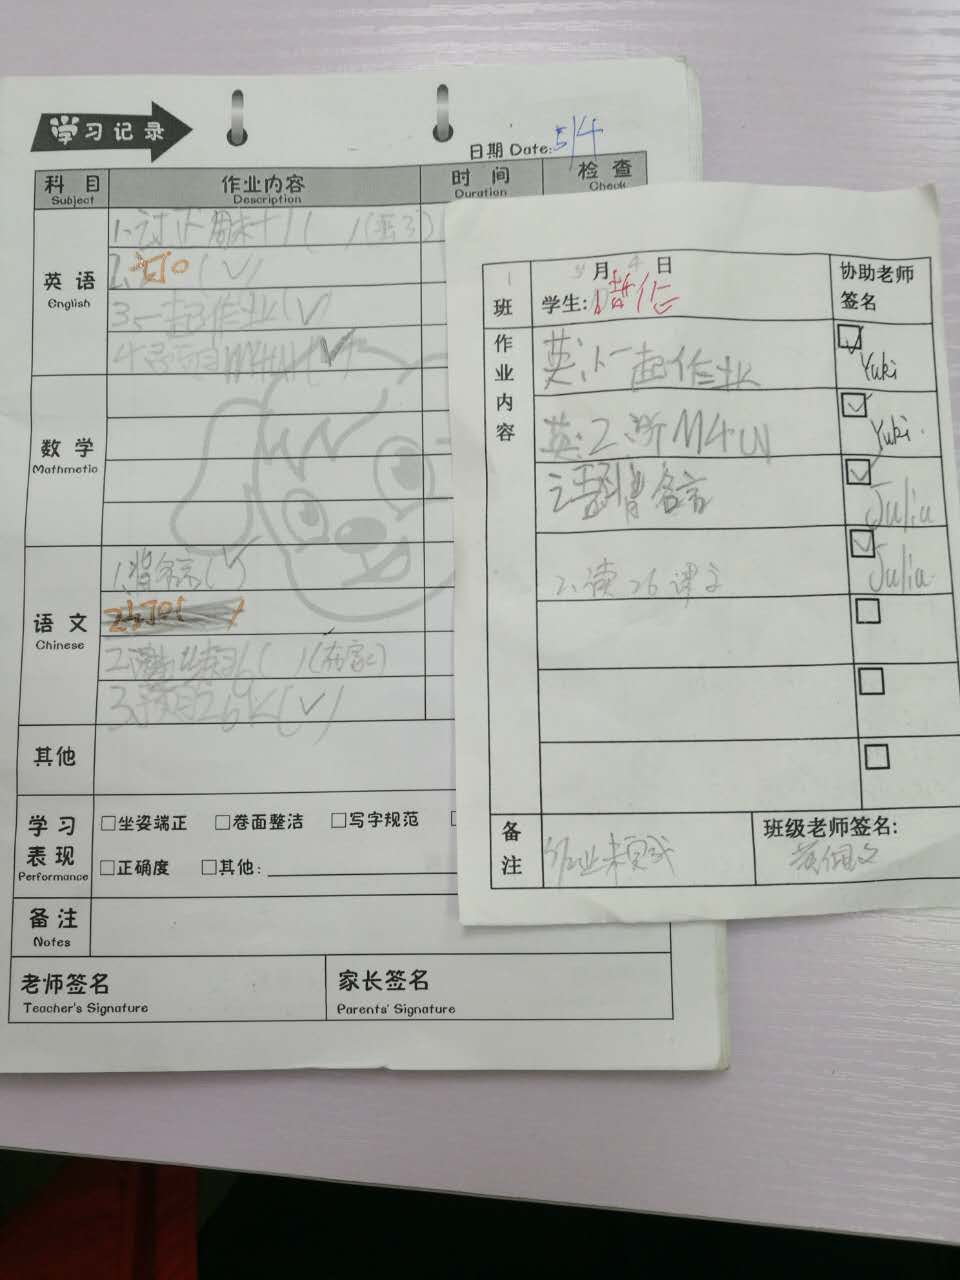 学习记录
日期 Date: 5/4
科目 作业内容 时间 检查
Subject Description Duration Check
英语
English
2.订o(√)
3.一起作业(√)
M4U1(√)
数学
Mathmetic
语文
Chinese
1.背名言(√)
(在家)
3.预习26K(√)
其他
学习
表现
Performance
□坐姿端正 □卷面整洁 □写字规范
□正确度 □其他:
备注
Notes
老师签名
Teacher's Signature
家长签名
Parents' Signature
1
班
5月4日
学生:
协助老师
签名
作业内容
英:1.一起作业
Yuki
英:2.听M4U1
Yuki.
背名言
Julia
2.读26课文
Julia.
备注
作业未完成
班级老师签名: